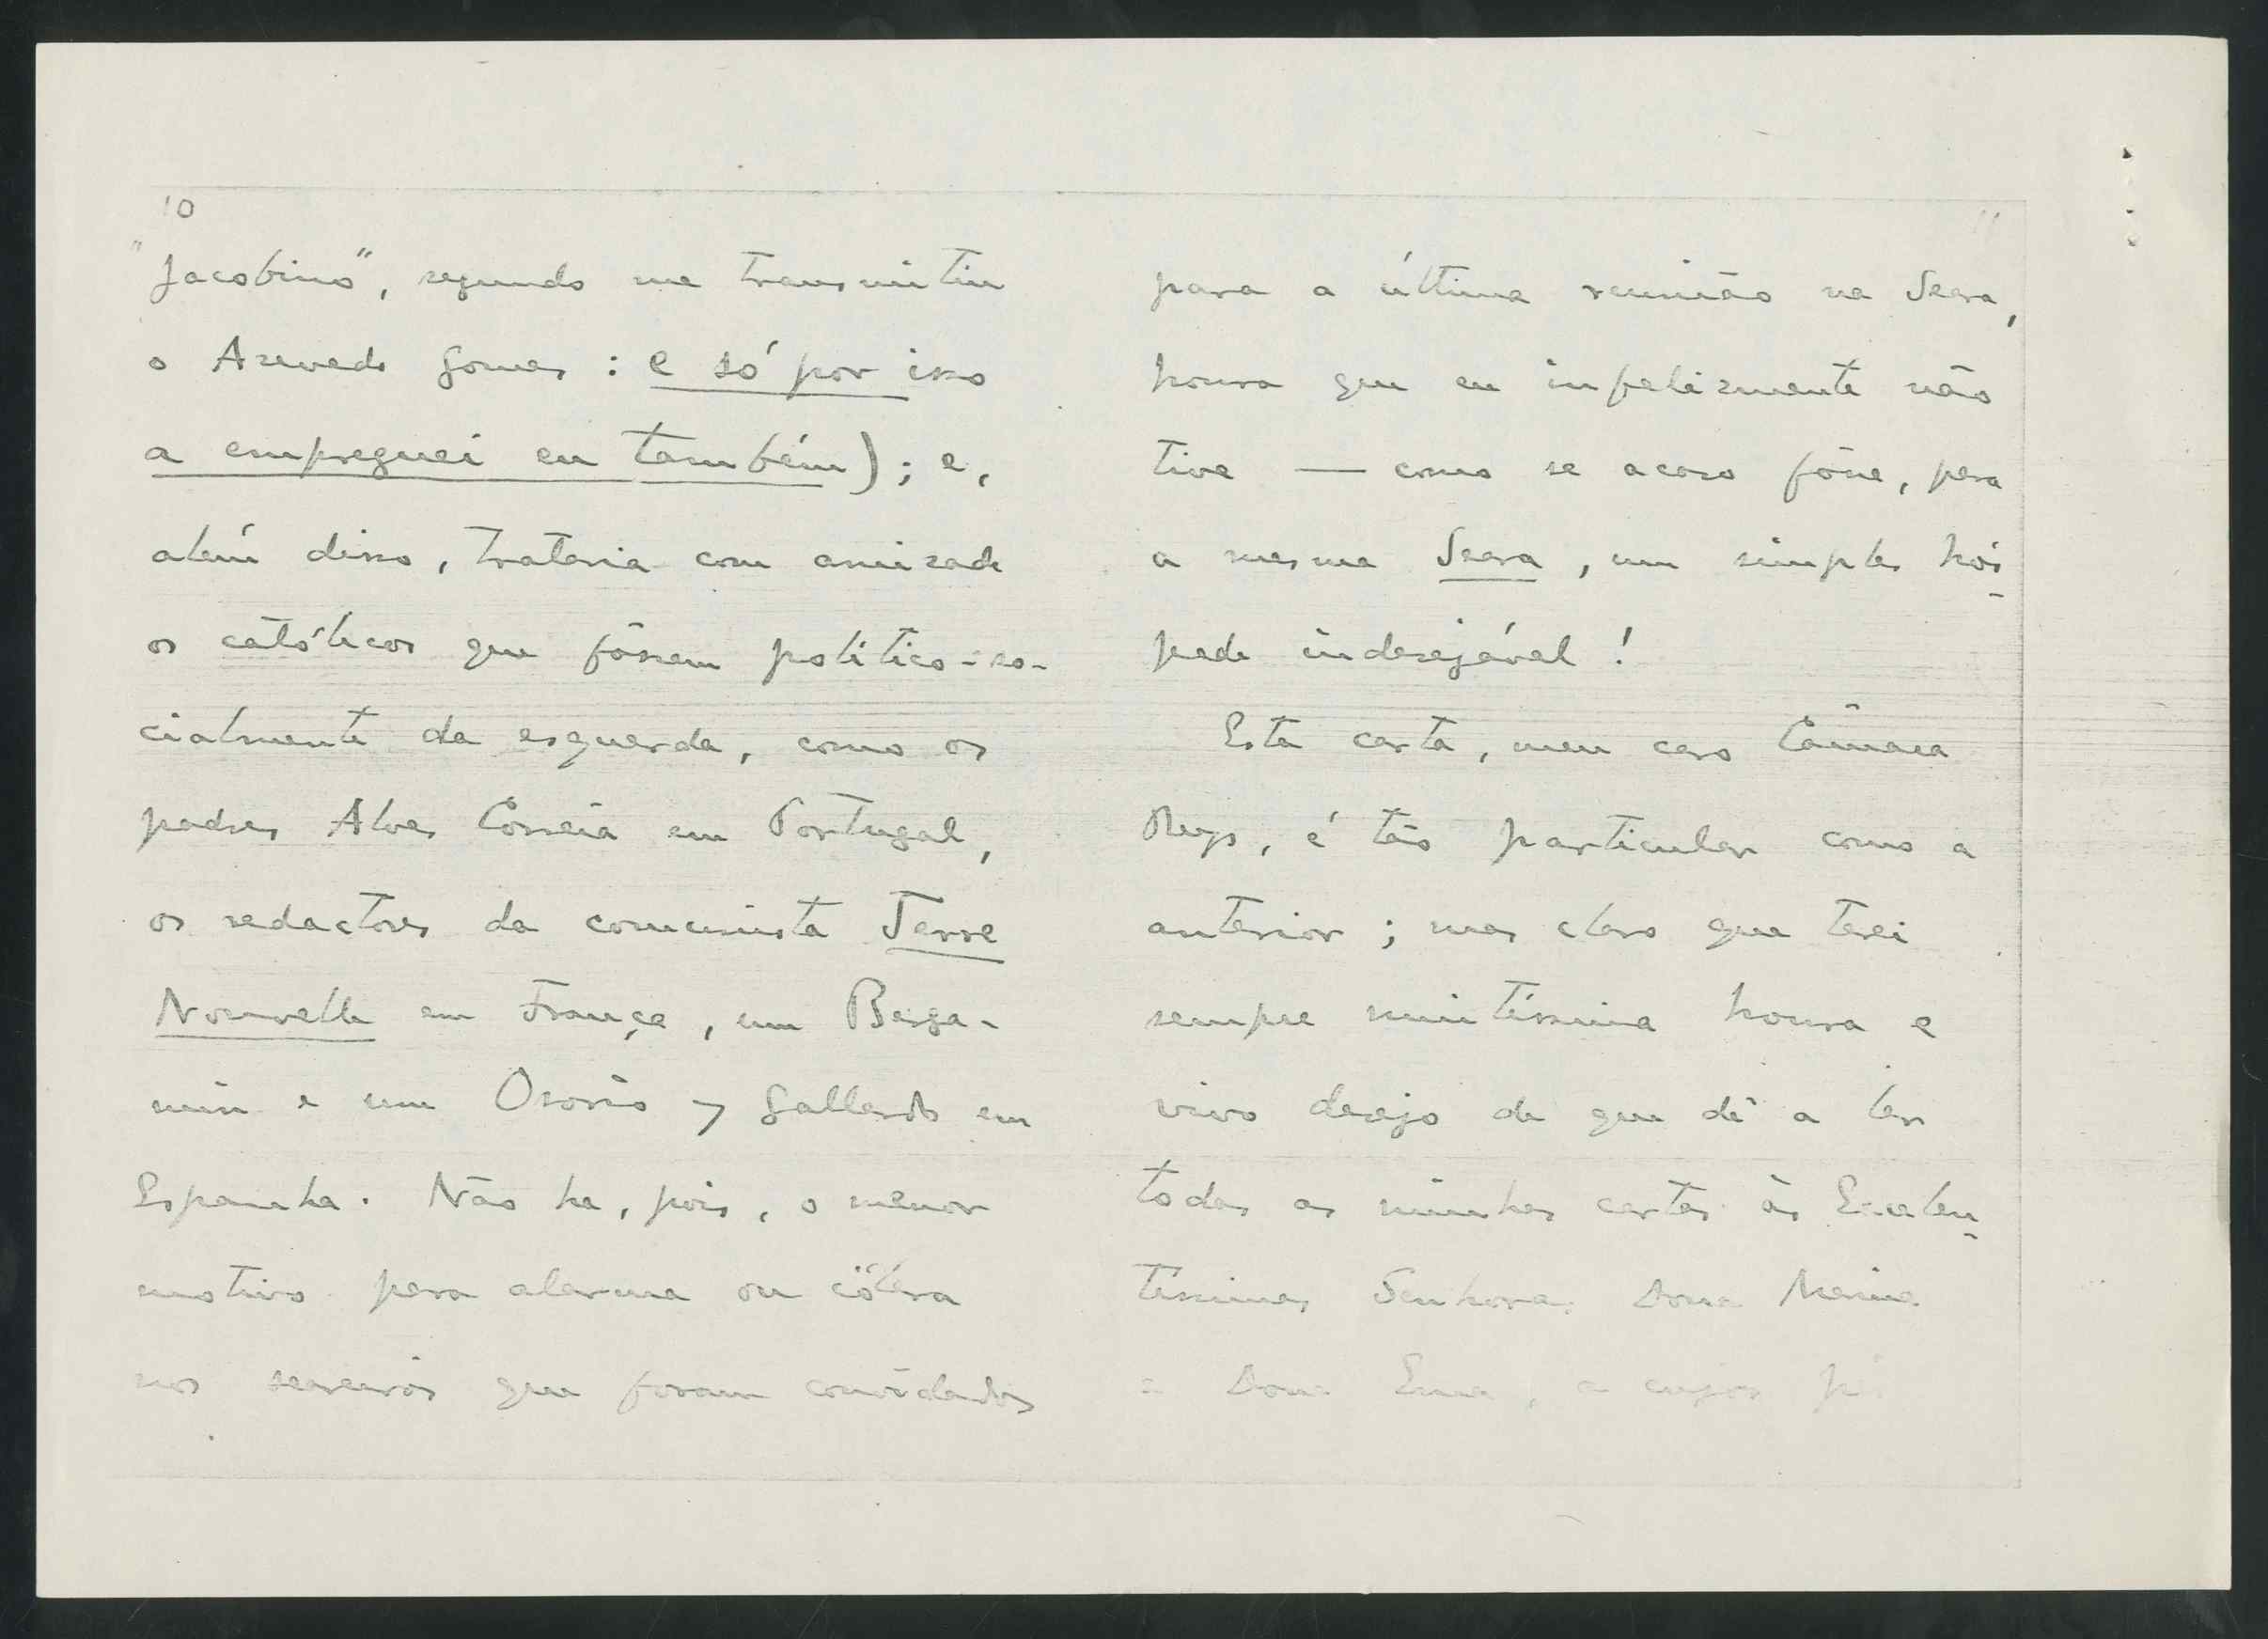 10
"jacobino", segundo me transmitiu
o Azevedo Gomes : e só por isso
a empreguei eu também) ; e,
além disso, trataria com amizade
os católicos que fôssem político-so-
cialmente da esquerda, como os
padres Alves Correia em Portugal,
os redactores da comunista Terre
Nouvelle em França, um Berga-
min e um Osorio y Gallardo em
Espanha. Não ha, pois, o menor
motivo para alarme ou cólera
nos seareiros que foram convidados
11
para a última reunião na Seara,
honra que eu infelizmente não
tive — como se acaso fôsse, para
a mesma Seara, um simples hós-
pede indesejável !
Esta carta, meu caro Câmara
Reys, é tão particular como a
anterior ; mas claro que terei
sempre muitíssima honra e
vivo desejo de que dê a ler
todas as minhas cartas às Excelen-
tíssimas Senhoras Dona Maria
e Dona Ema, a cujos pés